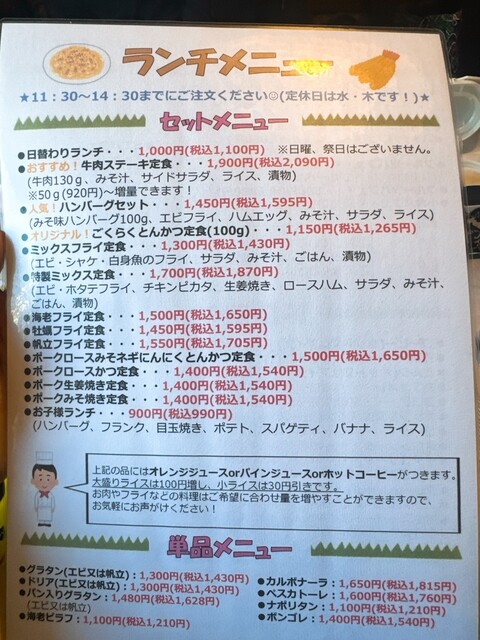 ランチメニュー
★11：30～14：30までにご注文ください☺(定休日は水・木です！)★
セットメニュー
●日替わりランチ・・・1,000円(税込1,100円)　※日曜、祭日はございません。
●おすすめ！牛肉ステーキ定食・・・1,900円(税込2,090円)
(牛肉130ｇ、みそ汁、サイドサラダ、ライス、漬物)
※50ｇ(920円)～増量できます！
●人気！ハンバーグセット・・・1,450円(税込1,595円)
(みそ味ハンバーグ100g、エビフライ、ハムエッグ、みそ汁、サラダ、ライス)
●オリジナル！ごくらくとんかつ定食(100g)・・・1,150円(税込1,265円)
●ミックスフライ定食・・・1,300円(税込1,430円)
(エビ・シャケ・白身魚のフライ、サラダ、みそ汁、ごはん、漬物)
●特製ミックス定食・・・1,700円(税込1,870円)
(エビ・ホタテフライ、チキンピカタ、生姜焼き、ロースハム、サラダ、みそ汁、
ごはん、漬物)
●海老フライ定食・・・1,500円(税込1,650円)
●牡蠣フライ定食・・・1,450円(税込1,595円)
●帆立フライ定食・・・1,550円(税込1,705円)
●ポークロースみそネギにんにくとんかつ定食・・・1,500円(税込1,650円)
●ポークロースかつ定食・・・1,400円(税込1,540円)
●ポーク生姜焼き定食・・・1,400円(税込1,540円)
●ポークみそ焼き定食・・・1,400円(税込1,540円)
●お子様ランチ・・・900円(税込990円)
(ハンバーグ、フランク、目玉焼き、ポテト、スパゲティ、バナナ、ライス)
上記の品にはオレンジジュースorパインジュースorホットコーヒーがつきます。
大盛りライスは100円増し、小ライスは30円引きです。
お肉やフライなどの料理はご希望に合わせ量を増やすことができますので、
お気軽にお声がけください！
単品メニュー
●グラタン(エビ又は帆立)・・・1,300円(税込1,430円)
●ドリア(エビ又は帆立)・・・1,300円(税込1,430円)
●パン入りグラタン・・・1,480円(税込1,628円)
(エビ又は帆立)
●海老ピラフ・・・1,100円(税込1,210円)
●カルボナーラ・・・1,650円(税込1,815円)
●ペスカトーレ・・・1,600円(税込1,760円)
●ナポリタン・・・1,100円(税込1,210円)
●ボンゴレ・・・1,400円(税込1,540円)